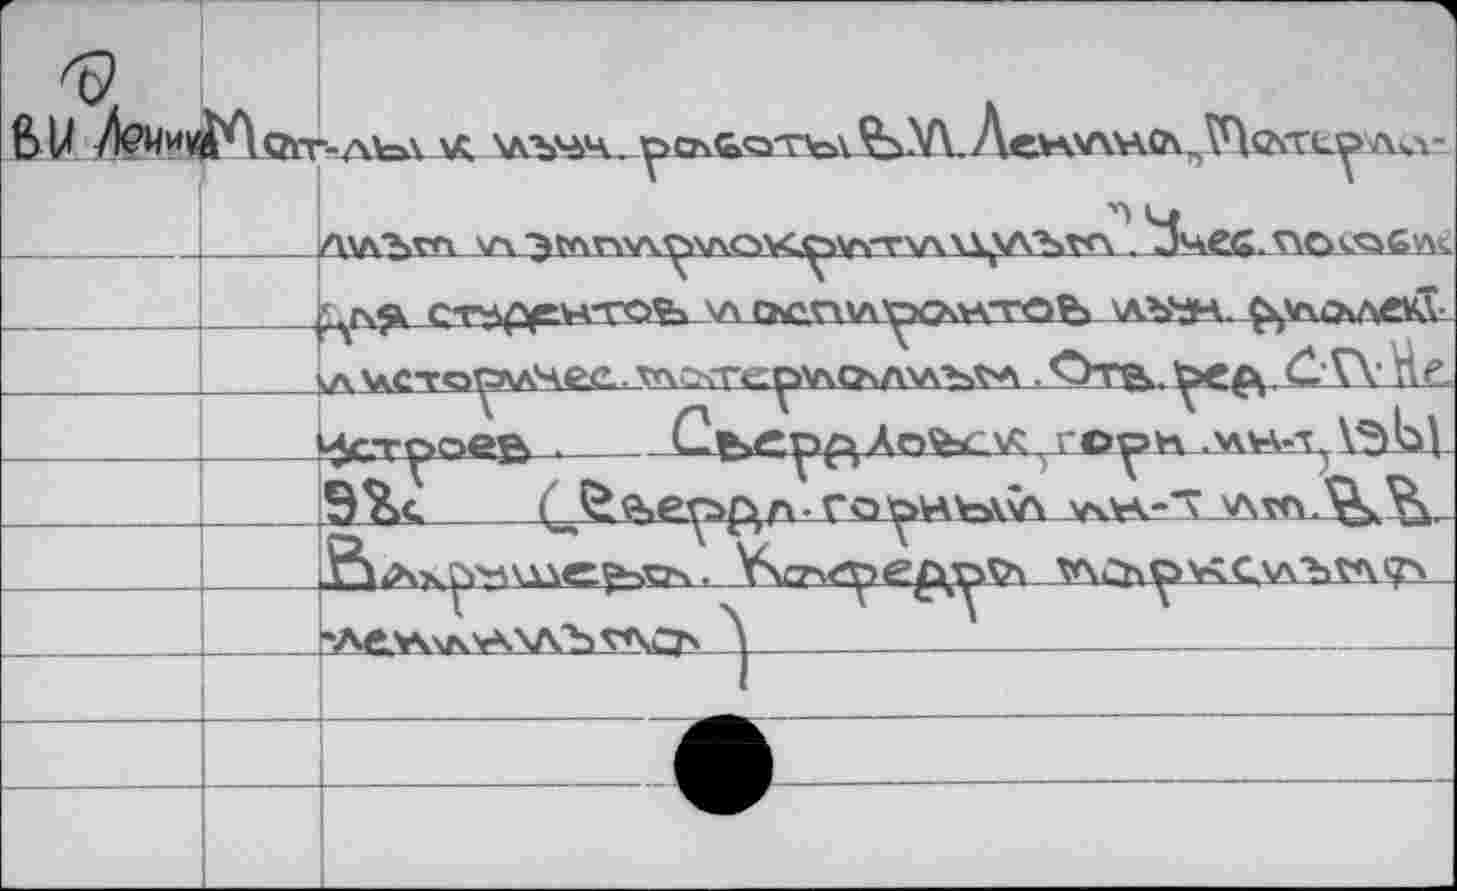 В
В И Ленин Мат-лы к изуч. работы В.И. Ленина „Материа-
лизм и эмпириокритицизм". Учеб. пособие
для студентов и аспирантов изуч. диалект.
и историчес. материализм. Отв. ред. С.П. Не
устроев. Свердловск, горн. ин-т, 1961
92с (Свердл. горный ин-т им. В.В.
Вахрушева. Кафедра марксизма
-ленинизма)